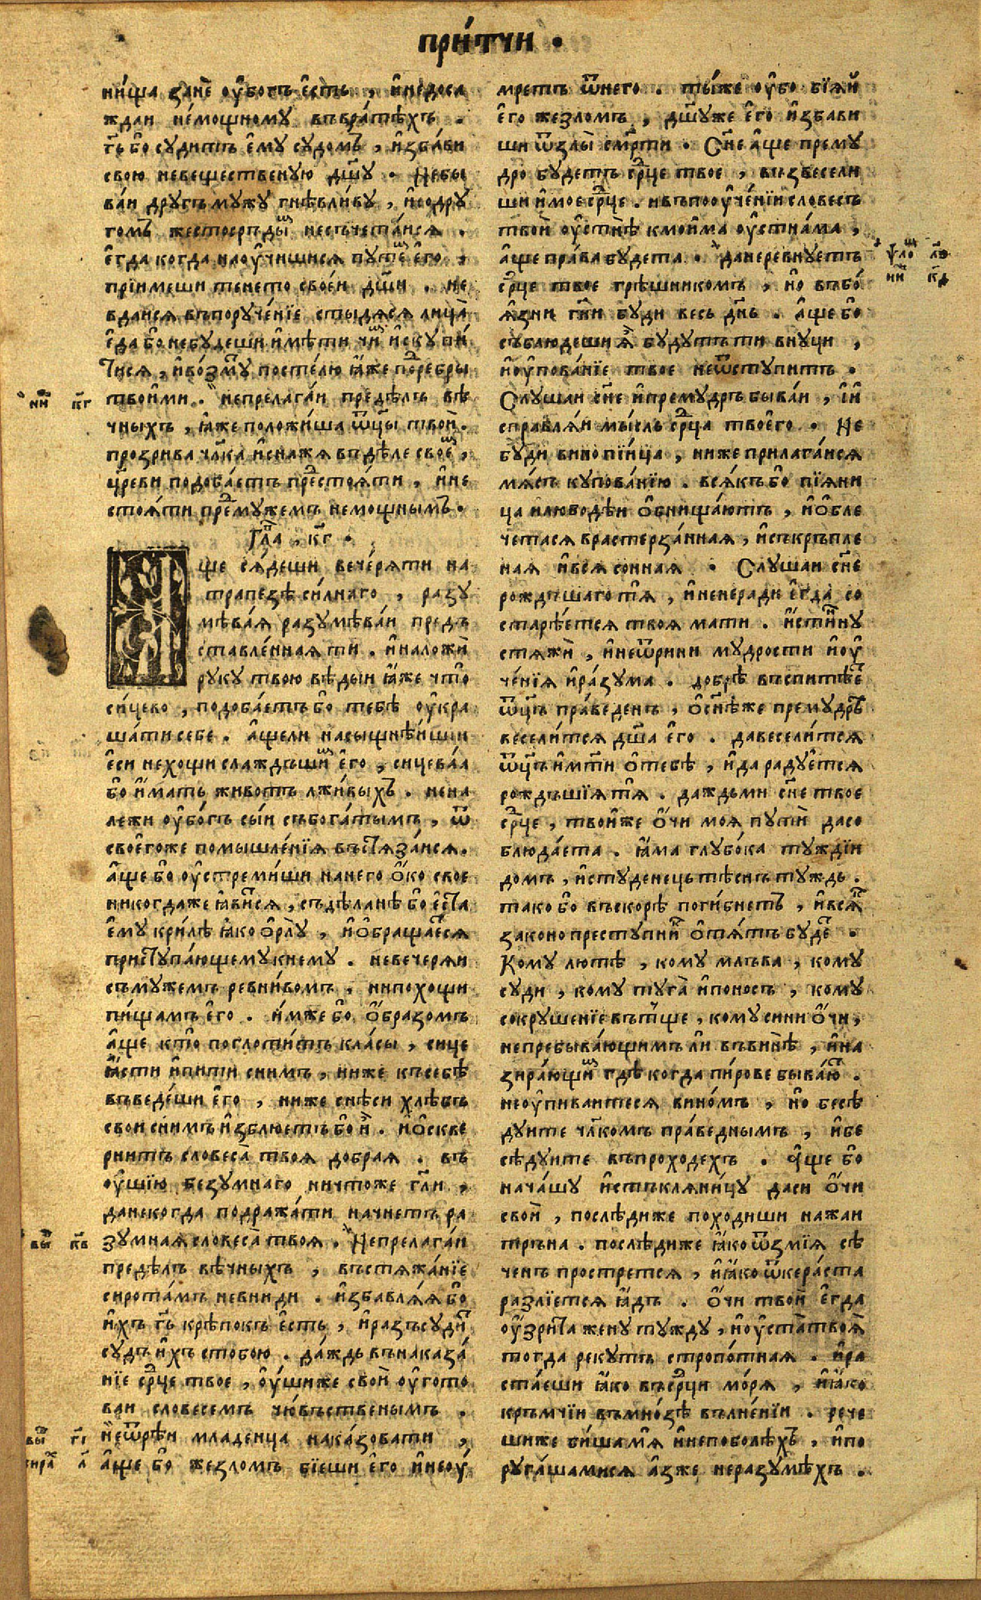 при́тчи .
ни́ща занѐ оу҆бо́гъ є҆сть , и҆недоса
ждаи не́мощному въвра́тѣхъ .
гь҃ бо судитъ є҆му судомъ , и҆зба́ви
свою невещественую дш҃у . Небы
ва́и другъ мужу гнѣвли́ву , и҆содру
гомъ жестосрьдыⷨ несъчета́ися .
є҆гда когда наоу҆чишися путеⷨ є҆го̀ ,
прїимеши тенето свое́и дш҃и . не
вдаися въпоруче́нїе стыдяся лица̀
є҆да бо небудеши и҆мѣти чиⷨ и҆скупи́
тися , и҆во́змꙋ посте́лю ꙗ҆же поⷣребры
твои́ми . непрелага́и предѣлъ вѣ
чныхъ , ꙗ҆же положи́ша ѿц҃ы твоѝ .
прозрива члк҃а и҆снажя впдѣле своеⷨ ,
цр҃еви подоба́етъ преⷣстоя́ти , и҆не
стоя́ти преⷣмужемъ немощнымъ .
Гла҃ , кг҃ .
ще ся́деши вече́ряти на
трапе́зѣ си́лнаго , разу
мѣва́я разумѣва́и предъ
ставле́нная ти . и҆наложѝ
руку твою вѣдыи ꙗ҆же что̀
си́цево , подоба́етъ бо тебѣ оу҆кра
шати себе . а҆щели насыщнѣишїи
є҆си нехощи сла́ждьшиⷯ є҆го , сицевая
бо и҆мать живо́тъ лжи́выхъ . нена
лежи оу҆бо́гъ сы́и събога́тымъ , ѿ
своего́же помышле́нїя въстяза́ися .
а҆ще бо оу҆стреми́ши нанего ѻ҆ко свое
никогдаже ꙗ҆ви́тся , съдѣланѣ бо є҆ста
є҆му криле́ ꙗ҆ко ѻ҆рлу , и҆ѻ҆браща́ется
приступа́ющему кнему . невечеряи
съмужемъ ревни́вомъ , нипохощи
пи́щамъ є҆го . и҆мже бо ѻ҆бразомъ
а҆ще кто̀ поглоти́тъ кла́сы , сице
ꙗ҆сти и҆пити снимъ , ниже къ себѣ
въведе́ши є҆го , ниже снѣси хлѣбъ
свои снимъ и҆зблюетъ бо и҆ . и҆ѻ҆скве
рнитъ словеса̀ твоя добрая . въ
оу҆шїю безумнаго ничтоже гл҃и ,
данекогда подража́ти начнетъ ра
зумная словеса̀ твоя . Непрелага́и
предѣлъ вѣчныхъ , въстяжа́нїе
сирота́мъ невниди . и҆збавляя бо
и҆хъ гь҃ крѣпокъ є҆сть , и҆разъсудиⷮ
судъ и҆хъ стобою . да́ждь внаказа́
нїе срⷣце твое , оу҆шиже своѝ оу҆гото
ваи словесемъ чю́въственымъ .
неѿрѣи младенца нака́зовати ,
а҆ще бо жезломъ бїеши є҆го и҆неоу҆
мретъ ѿнего . ты́же оу҆бо бїя́и
є҆го жезломъ , дш҃уже є҆го и҆збави
ши ѿзлы̀ смр҃ти . Сн҃е а҆ще прему
дро будетъ срⷣце твое , възвесели
ши и҆мое срⷣце . ивъпооу҆че́нїи словесъ
твои оу҆стнѣ кмои́ма оу҆стна́ма ,
а҆ще пра́ва будета . даневревнуетъ
срⷣце твое грѣшникомъ , но въбо
ꙗ҆зни гн҃и буди весь дн҃ь . а҆ще бо
съблюдеши ꙗ҆ будутъ ти внуци ,
и҆оу҆пова́нїе твое неѿступитъ .
Слушаи сн҃е и҆прему́дръ быва́и , и҆и
справля́и мы́сль срⷣца твоего . Не
буди винопїи́ца , ниже прилага́ися
мя́съ купова́нїю . вся́къ бо пїяни
ца илюводѣи ѻ҆бнища́ютъ , и҆ѻ҆бле
четася врастерза́нная , и҆съкръпле
ная и҆вся сонная . Слушаи сн҃е
рожⷣьшаго тя̀ , и҆неиеради є҆гда со
старѣется твоя мати . и҆стинну
стяжѝ , и҆неѿрини мудрости и҆оу҆
че́нїя и҆ра́зума . добрѣ въспитѣе
ѿц҃ь пра́веденъ , ѻ҆снѣже премудрѣ
весели́тся дш҃а є҆го . давесели́тся
ѿц҃ъ и҆мт҃и ѻ҆тебѣ , и҆да радуется
рождьшїя тя̀ . даждьми сн҃е твое
срⷣце , твоиже ѻ҆чи моя путѝ да со
блюда́ета . ꙗ҆ма глубока тужді́и
домъ , и҆студенець тѣсенъ туждь .
тако бо въскорѣ поги́бнетъ , и҆всяⷦ
законопресту́пниⷦ ѻ҆тя́тъ будеⷮ .
Кому лютѣ , кому млъва , кому
суди , кому туга̀ и҆поносъ , кому
сокрушенїе вътще , кому сини ѻ҆чи ,
непребыва́ющимъ ли въвинѣ , и҆на
зира́ющиⷨ гдѣ когда пи́рове быва́юⷮ .
неоу҆пиваитеся вино́мъ , но бесѣ
дуите члк҃омъ пра́веднымъ , и҆бе
сѣдуите въпроходехъ . а҆ще бо
нача́шу и҆стъкляни́цу даси ѻ҆чи
своѝ , послѣдиже походиши нажаи
трьна . послѣдиже ꙗ҆ко ѿзмїя сѣ
ченъ прострется , и҆ꙗ҆ко ѿкера́ста
разлїется ꙗ҆дъ . ѻ҆чи твоѝ є҆гда
оу҆зрита жену тужду , и҆оу҆ста̀ твоя̀
тогда рекутъ стропо́тная . и҆ра
ста́еши ꙗ҆ко въсрⷣци мо́ря , и҆ꙗ҆ко
кръмчїи въмно́зѣ вълне́нїи . рече
шиже би́ша мя и҆непоболѣхъ , и҆по
руга́шамися а҆зже неразумѣхъ .
ниⷤ кг҃
выⷲ кв҃
выⷲ гі҃
сираⷯ л҃
ниⷤ кд҃